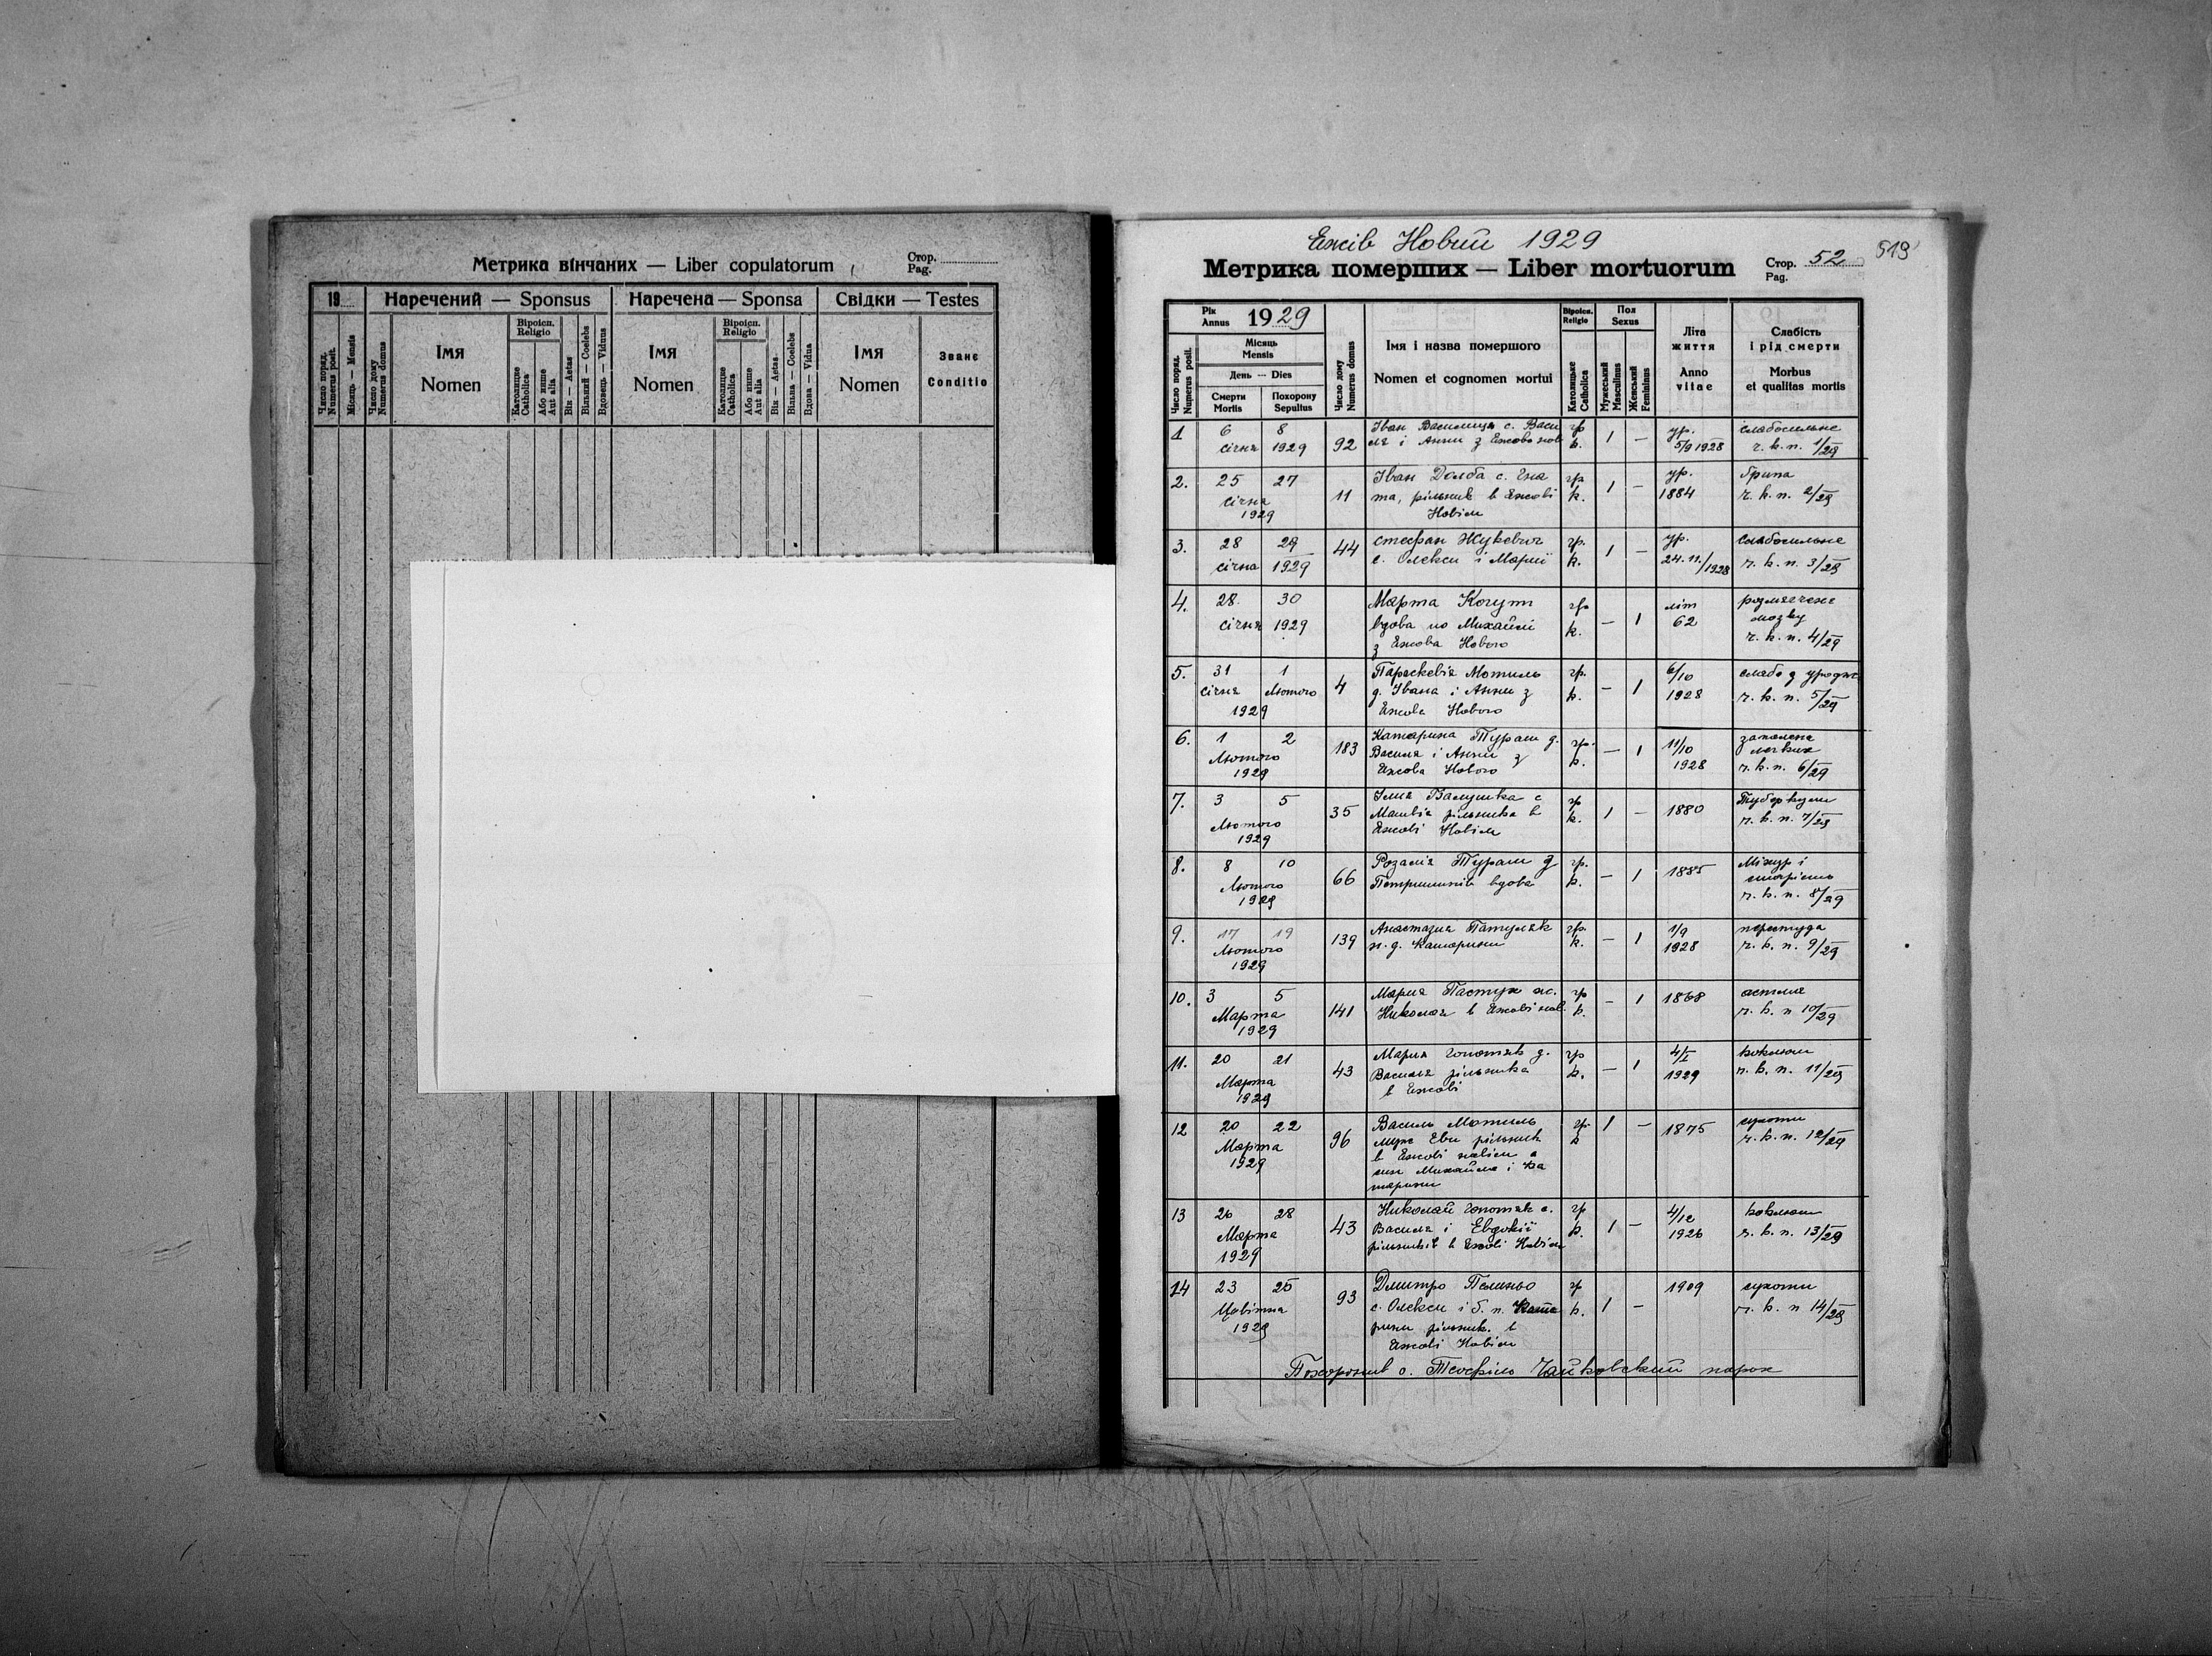 Метрика вінчаних — Liber copulatorum
Стор.
Pag.
19
Наречений — Sponsus
Наречена — Sponsa
Свідки — Testes
Число поряд.
Numerus posit.
Місяць — Mensis
Число дому
Numerus domus
Імя
Nomen
Віроісп.
Religio
Католицке
Catholica
Або инше
Aut alia
Вік — Aetas
Вільний — Coelebs
Вдовець — Viduus
Імя
Nomen
Віроісп.
Religio
Католицке
Catholica
Або инше
Aut alia
Вік — Aetas
Вільна — Coelebs
Вдова — Vidua
Імя
Nomen
Званє
Conditio
Ежів Новий 1929
519
Метрика померших — Liber mortuorum
Стор. 52
Pag.
Рік
Annus 1929
Число поряд.
Numerus posit.
Місяць
Mensis
День — Dies
Смерти
Mortis
Похорону
Sepultus
Число дому
Numerus domus
Імя і назва помершого
Nomen et cognomen мortui
Віроісп.
Religio
Католицьке
Catholica
Пол
Sexus
Мужеський
Masculinus
Женський
Femininus
Літа
життя
Anno
vitae
Слабість
і рід смерти
Morbus
et qualitas mortis
1 6 8 92 Іван с. Васи гр 1 — ур. слабосильне
січня 1929 ля і Анни з Ежова нов к. 5/9 1928 ч. к. п. 1/29
2. 25 27 11 Іван Долба с. Гна гр 1 — ур. Грипа
січня та, рільник в Ежові к. 1884 ч. к. п. 2/29
1929 Новім
3. 28 29 44 Стефан Жукевич гр. 1 — ур. слабосильне
січня 1929 с. Олекси і Марії к. 24.11./1928 ч. к. п. 3/29
4. 28. 30 Марта Когут гр. — 1 літ розмягченє
січня 1929 вдова по Михайлі к. 62 мозку
з Ежова Нового ч. к. п. 4/29
5. 31 1 4 Параскевія Мотиль гр. — 1 6/10 слабо з уродж.
січня Лютого д. Івана і Анни з к. 1928 ч. к. п. 5/29
1929 Ежова Нового
6. 1 2 183 Катарина Тураш д. гр. — 1 11/10 запаленє
Лютого Василя і Анни з к. 1928 легких
1929 Ежова Нового ч. к. п. 6/29
7. 3 5 35 Ілия Валушка с гр 1 — 1880 Туберкули
Лютого Матвія рільника в к. ч. к. п. 7/29
1929 Ежові Новім
8. 8 10 66 Розалія Тураш д гр. — 1 1885 Міхур і
Лютого Петришинів вдова к. старість
1929 ч. к. п. 8/29
9. 17 19 139 Анастазия Патуляк гр. — 1 1/9 перестуда
Лютого н. д. Катарини к. 1928 ч. к. п. 9/29
1929
10. 3 5 141 Мария Пастух ж. гр — 1 1868 астма
Марта Николая в Ежові нов. к. ч. к. п 10/29
1929
11. 20 21 43 Мария Гопотяк д. гр — 1 4/I коклюш
Марта Василя рільника к. 1929 ч. к. п. 11/29
1929 в Ежові
12 20 22 96 Василь Мотиль гр. 1 — 1875 сухоти
Марта муж Еви рільник к ч. к. п. 12/29
1929 в Ежові новім а
син Михайла і Ка
тарини
13 26 28 43 Николай Гопотяк с. гр 1 — 4/12 коклюш
Марта Василя і Евдокії к. 1926 ч. к. п. 13/29
1929 рільників в Ежові Новім
14 23 25 93 Дмитро Пелиньо гр 1 — 1909 сухоти
Цвітня с. Олекси і б. п. Ката к. ч. к. п 14/29
1929 рини рільник. в
Ежові Новім
Похоронив о. Теофіль Чайковский парох